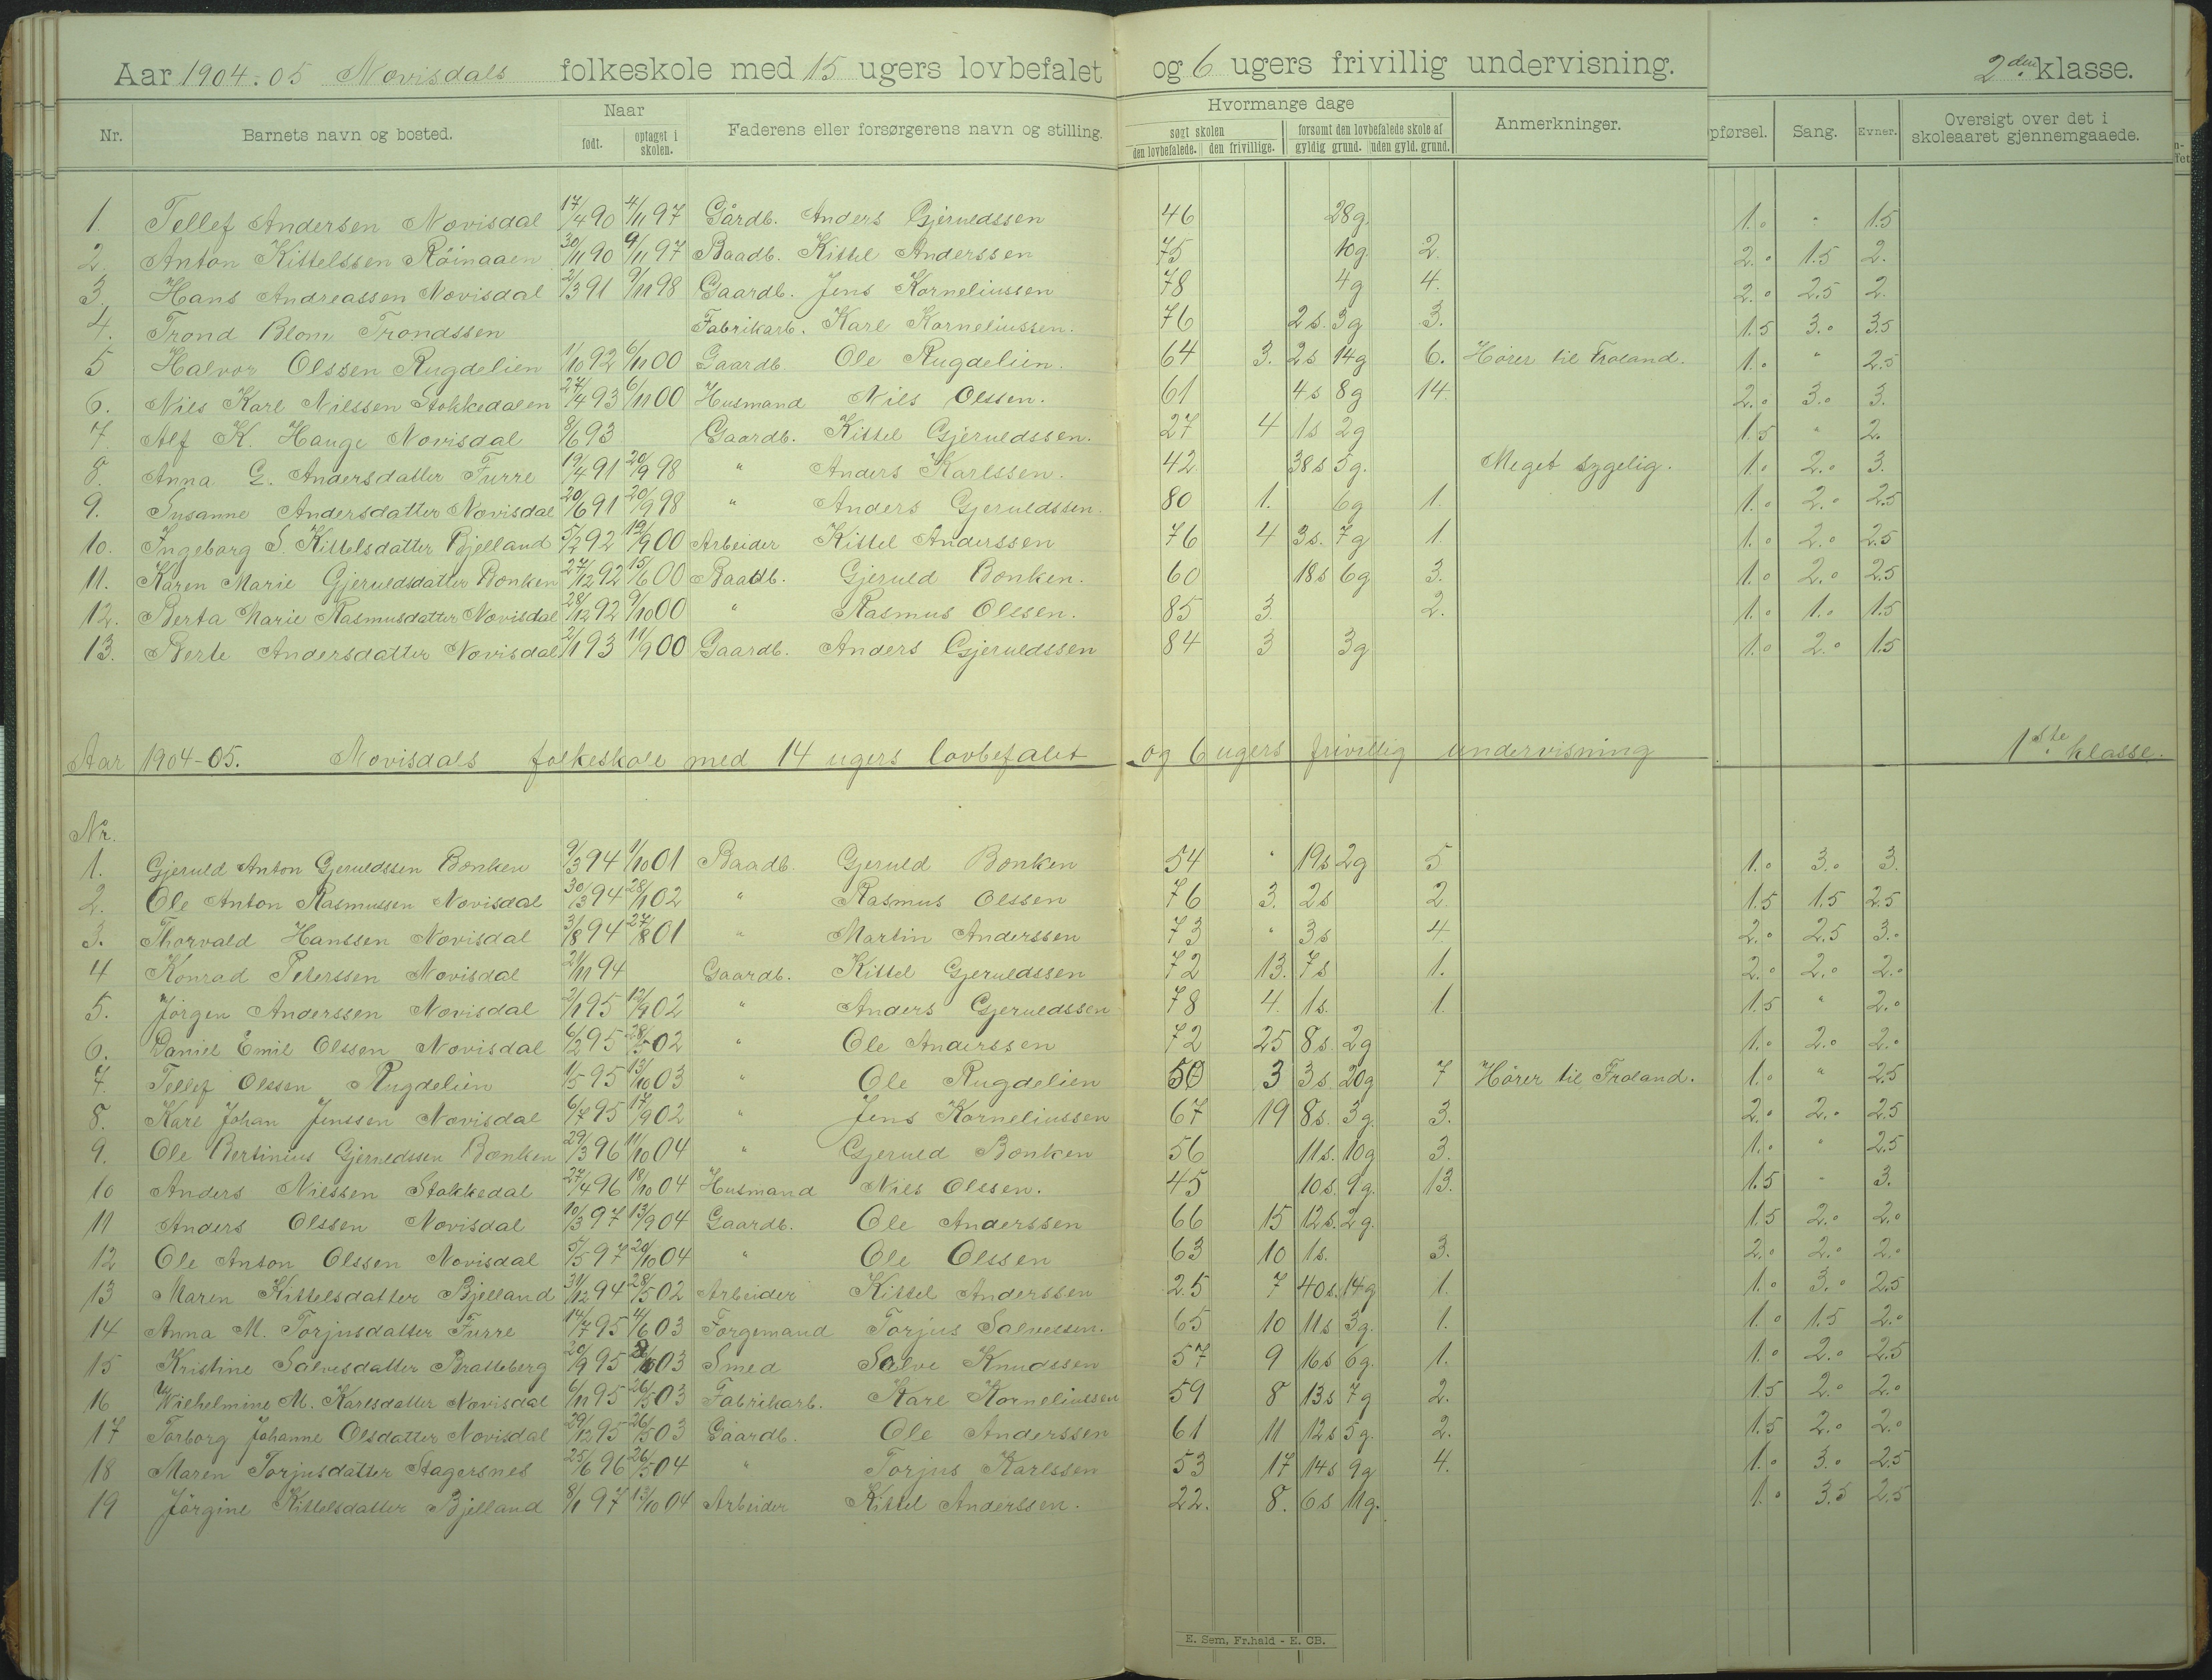 Aar 1904-05 Novisdals folkeskole med 15 ugers lovbefalet og 6 ugers frivillig undervisning. 2den klasse.
Nr. Barnets navn og bosted. Naar født. optaget i skolen. Faderens eller forsørgerens navn og stilling. Hvormange dage søgt skolen den lovbefalede. den frivillige. forsømt den lovbefalede skole af gyldig grund. uden gyld. grund. Anmerkninger. pførsel. Sang. Evner. Oversigt over det i skoleaaret gjennemgaaede.
1. Tellef Andersen Novisdal 17/4 90 4/11 97 Gårdb. Anders Gjeruldssen 46 28g. 1.0 - 1.5
2. Anton Kittelssen Röinaaen 30/11 90 9/11 97 Baadb. Kittel Anderssen 75 10g. 2. 2.0 1.5 2.
3. Hans Andreassen Novisdal 2/3 91 9/11 98 Gaardb. Jens Korneliussen 78 4g 4. 2.0 2.5 2.
4. Trond Blom Trondssen Fabrikarb. Karl Korneliussen. 76 2s. 3g 3. 1.5 3.0 3.5
5 Halvor Olssen Rugdelien 1/10 92 6/11 00 Gaardb. Ole Rugdelien. 64 3. 2s 14g 6. Hörer til Froland. 1.0 " 2.5
6. Nils Karl Nilssen Stokkedalen 27/4 93 6/11 00 Husmand Nils Olssen. 61 4s 8g 14. 2.0 3.0 3.
7. Alf K. Hauge Novisdal 8/6 93 Gaardb. Kittel Gjeruldssen. 27 4 1s 2g 1.5 " 2.
8. Anna G. Andersdatter Furre 19/4 91 20/9 98 " Anders Karlssen. 42 38s 5g. Meget sygelig. 1.0 2.0 3.
9. Susanne Andersdatter Novisdal 20/6 91 20/9 98 " Anders Gjeruldssen. 80 1. 6g 1. 1.0 2.0 2.5
10. Ingeborg S. Kittelsdatter Bjelland 5/2 92 12/9 00 Arbeider Kittel Anderssen 76 4 3s. 7g 1. 1.0 2.0 2.5
11. Karen Marie Gjeruldsdatter Bonken 27/12 92 15/6 00 Baadb. Gjeruld Bonken. 60 18s 6g 3. 1.0 2.0 2.5
12. Berta Marie Rasmusdatter Novisdal 28/12 92 9/10 00 " Rasmus Olssen. 85 3. 2. 1.0 1.0 1.5
13. Berte Andersdatter Novisdal 2/1 93 11/9 00 Gaardb. Anders Gjeruldssen 84 3 3g 1.0 2.0 1.5
Aar 1904-05. Novisdals folkeskole med 14 ugers lovbefalet og 6 ugers frivillig undervisning 1ste klasse.
Nr.
1. Gjeruld Anton Gjeruldssen Bonken 9/3 94 1/10 01 Baadb. Gjeruld Bonken 54 " 19s 2g 5 1.0 3.0 3.
2. Ole Anton Rasmussen Novisdal 30/3 94 28/1 02 " Rasmus Olssen 76 3. 2s 2. 1.5 1.5 2.5
3. Thorvald Hanssen Novisdal 3/8 94 27/8 01 " Martin Anderssen 73 " 3s 4. 2.0 2.5 3.0
4 Konrad Peterssen Novisdal 21/11 94 Gaardb. Kittel Gjeruldssen 72 13. 7s 1. 2.0 2.0 2.0
5. Jörgen Anderssen Novisdal 2/1 95 12/9 02 " Anders Gjeruldssen 78 4. 1s. 1. 1.5 " 2.0
6. Daniel Emil Olssen Novisdal 6/2 95 28/5 02 " Ole Anderssen 72 25 8s. 2g 1.0 2.0 2.0
7. Tellef Olssen Rugdelien 1/5 95 13/10 03 " Ole Rugdelien 50 3 3s. 20g 7 Hörer til Froland. 1.0 " 2.5
8. Karl Johan Jenssen Novisdal 6/7 95 17/9 02 " Jens Korneliussen 67 19 8s. 3g. 3. 2.0 2.0 2.5
9. Ole Bertinius Gjeruldssen Bonken 29/3 96 11/10 04 " Gjeruld Bonken 56 11s. 10g 3. 1.0 " 2.5
10 Anders Nilssen Stokkedal 27/4 96 18/10 04 Husmand Nils Olssen. 45 10s. 9g. 13. 1.5 - 3.
11 Anders Olssen Novisdal 10/3 97 13/9 04 Gaardb. Ole Anderssen 66 15 12s. 2g. 1.5 2.0 2.0
12 Ole Anton Olssen Novisdal 5/5 97 20/10 04 " Ole Olssen 63 10 1s. 3. 2.0 2.0 2.0
13 Maren Kittelsdatter Bjelland 31/12 94 28/5 02 Arbeider Kittel Anderssen 25 7 40s. 14g 1. 1.0 3.0 2.5
14 Anna M. Torjusdatter Furre 14/7 95 4/6 03 Forgemand Torjus Salvessen. 65 10 11s 3g. 1. 1.0 1.5 2.0
15 Kristine Salvesdatter Bratteberg 20/9 95 03 Smed Salve Knudssen 57 9 16s 6g. 1. 1.0 2.0 2.5
16 Wilhelmine M. Karlsdatter Novisdal 6/11 95 26/5 03 Fabrikarb. Karl Korneliussen 59 8 13s 7g 2. 1.5 2.0 2.0
17 Torborg Johanne Olsdatter Novisdal 29/12 95 26/5 03 Gaardb. Ole Anderssen 61 11 12s 5g. 2. 1.5 2.0 2.0
18 Maren Torjusdatter Stagersnes 25/6 96 26/5 04 " Torjus Karlssen 53 17 14s 9g 4. 1.0 3.0 2.5
19 Jörgine Kittelsdatter Bjelland 8/1 97 13/10 04 Arbeider Kittel Anderssen. 22. 8. 6s 11g. 1.0 3.5 2.5
E. Sem, Fr.hald - E. CB.